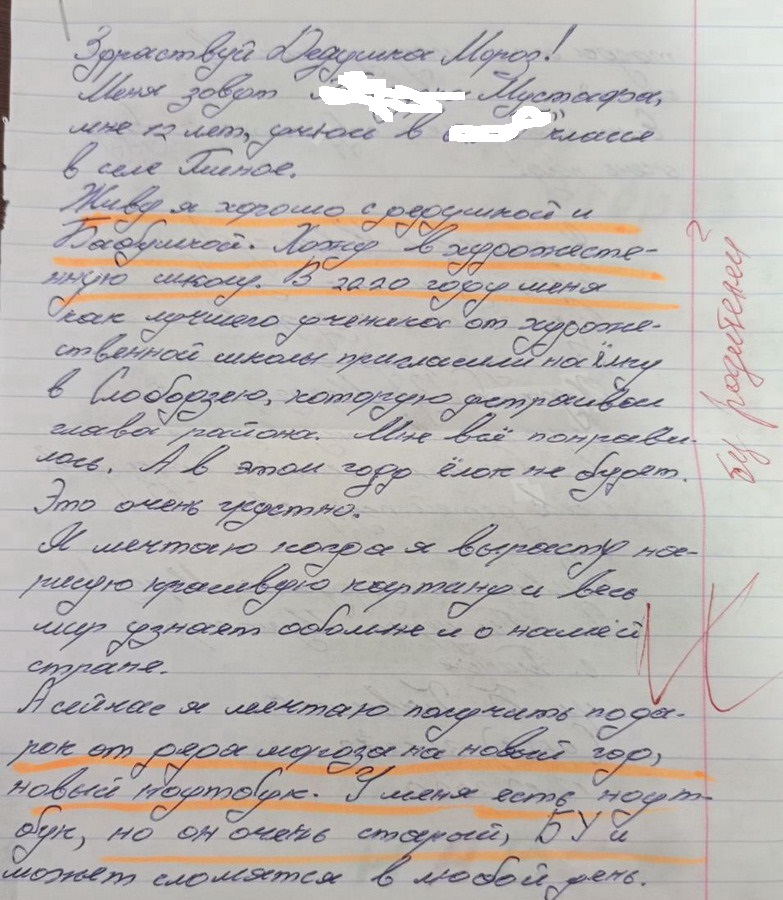 Здраствуй Дедушка Мороз!
Меня зовут Мустафа,
мне 12 лет, учюсь в классе
в селе Глиное.
Живу я хорошо с дедушкой и
Бабушкой. Хожу в художесте-
нную школу. В 2020 году меня
как лучшего ученика от художе-
ственной школы пригласили на ёлку
в Слободзею, которую устраивал
глава района. Мне всё понрави-
лось. А в этом году ёлок не будет.
Это очень грустно.
Я мечтаю когда я вырасту на-
рисую красивую картину и весь
мир узнает обо мне и о нашей
стране.
А сейчас я мечтаю получить пода-
рок от деда мороза на новый год,
новый ноутбук. У меня есть ноут-
бук, но он очень старый, БУ и
может сломятся в любой день.
б/у родителей?